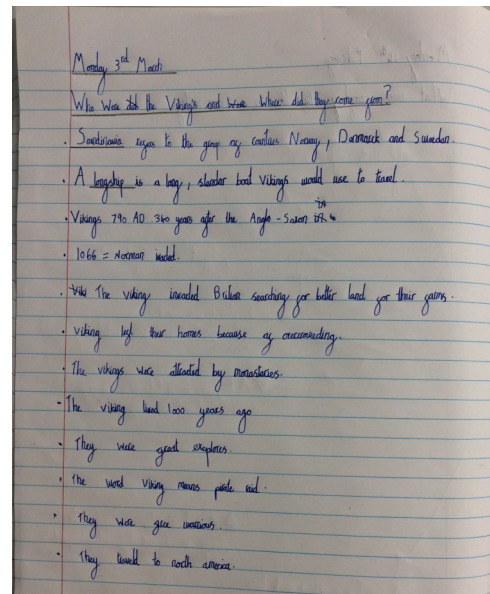 Monday 3rd March
Who Were did the Viking's and Were Where did they come from?
. Scandinavia refers to the group of countries Norway, Denmarck and Sweden.
. A longship is a long, slandar boat Vikings would use to travel.
. Vikings 790 AD 340 years after the Anglo-Saxon
. 1066 = Norman invaded.
. Viki The viking invaded Britian searching for better land for their farms.
. Viking left their homes because of overcrowding.
. The vikings were attracted by monastaries.
. The viking lived 1000 years ago
. They were great explores.
. The word Viking means pirate raid.
. They were warrious.
. They traveld to north america.